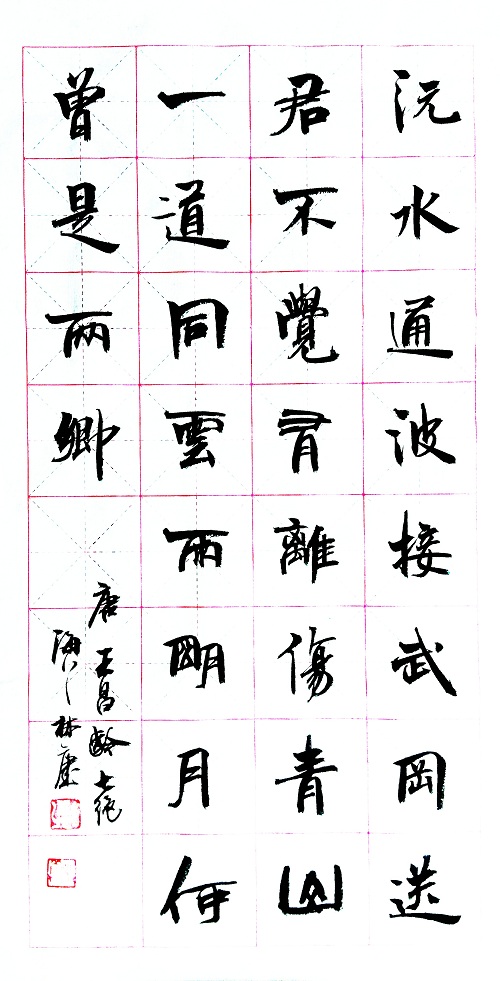 沅水通波接武岡送
君不覺有離傷青山
一道同雲雨明月何
曾是兩鄉
唐王昌齡七絕